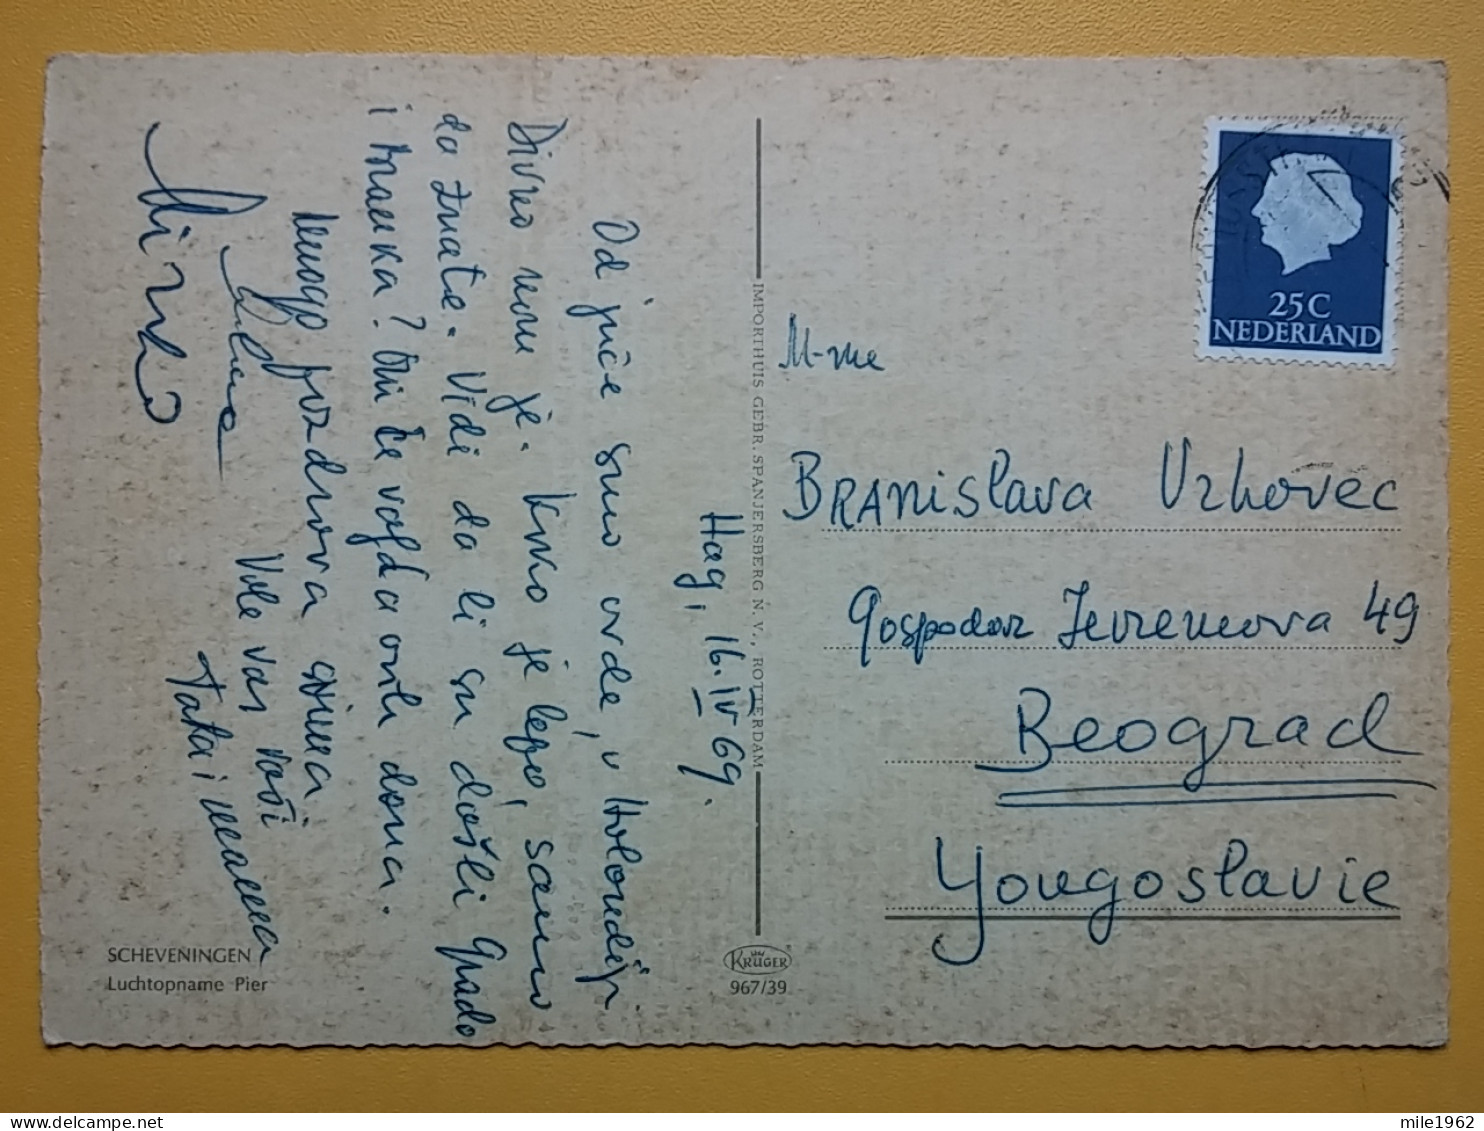 Hag, 16. IV 69.
Od juče smo ovde, u Holandiji
Divno nam je. Kako je lepo, samo
da znate. Vidi da li su došli Grada
i Maćka? Oni će valjda doma.
mnogo pozdrava svima
Vole vas vaši
tata i mama
Mirko
M-me
BRANislava Vrhovec
Gospodar Jevremova 49
Beograd
Yougoslavie
25C
NEDERLAND
IMPORTHUIS GEBR. SPANJERSBERG N.V., ROTTERDAM
KRÜGER
967/39
SCHEVENINGEN
Luchtopname Pier
mile1962